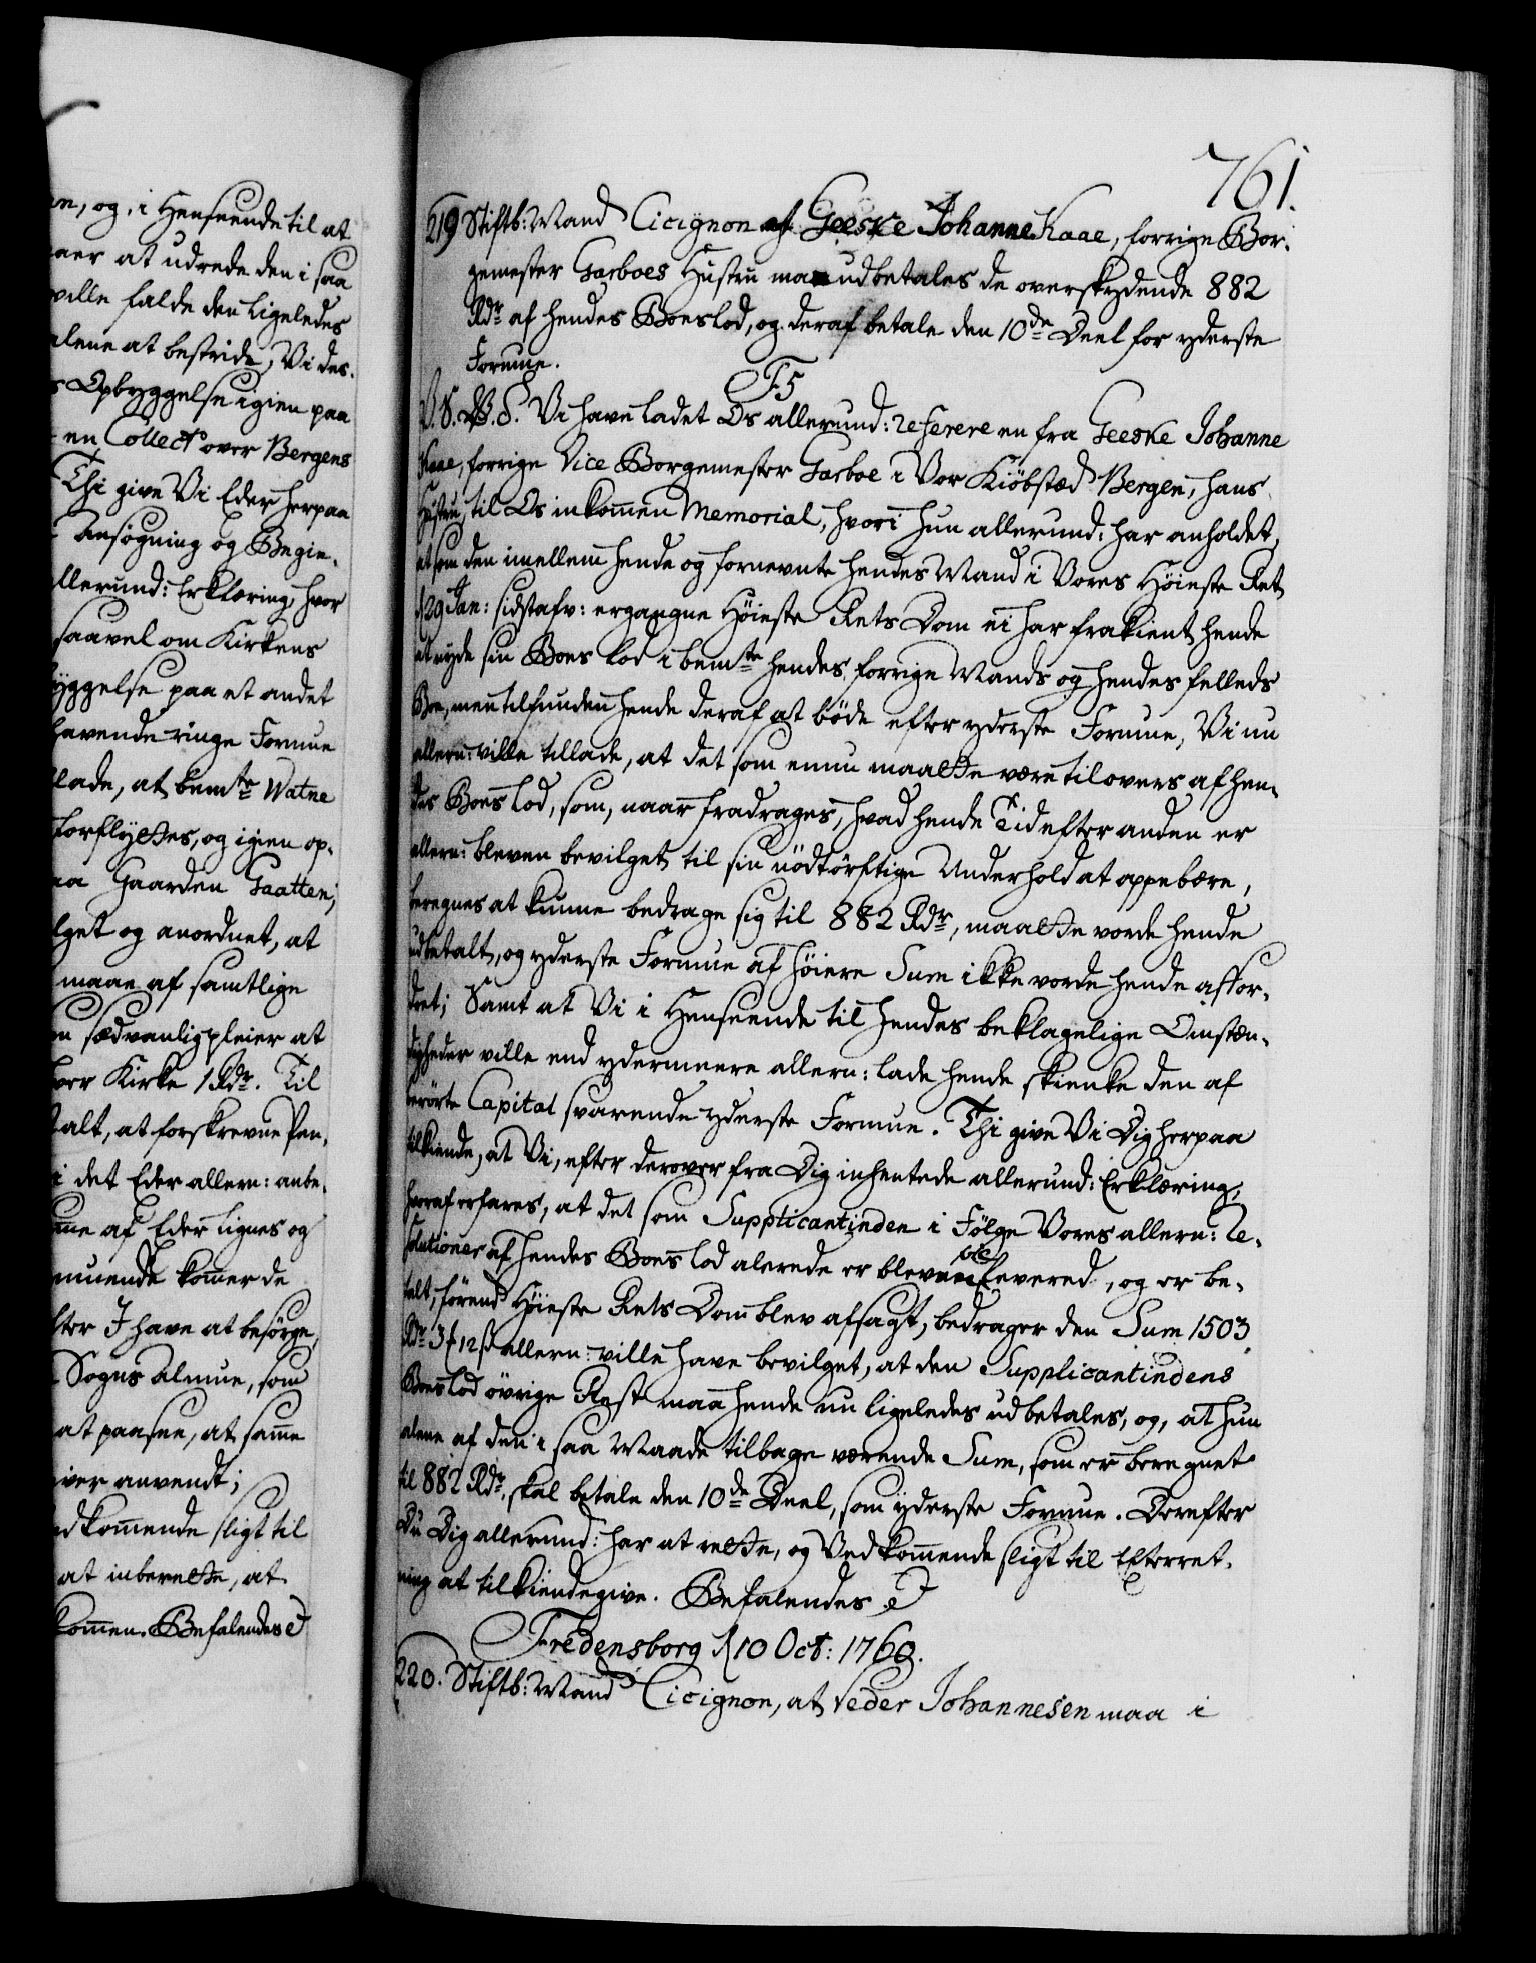 an, og, i Henseende til at
aer at udrede den i saa
ville falde den ligeledes
alene at bestride; Vi des-
s Opbyggelse igien paa
en Collect over Bergens
Thi give Vi Eder herpaa
Ansøgning og Begie-
allerund: Erklæring, hvor
saavel om Kirkens
yggelse paa et andet
havende ringe Formue
lade, at bemte Watne
forflyttes, og igien op-
aa Gaarden Taatten;
lget og anordnet, at
maae af samtlige
en sædvanlig pleier at
hver Kirke 1 Rdr. Til
talt, at forskrevne Pen-
i det Eder allern: anbe-
mme af Eder lignes og
muende kommer de
fter I have at besørge,
Sogns Almue, som
at paasee, at samme
iver anvendt;
edkommende sligt til
at inberette, at
kommen. Befalendes
761.
219 Stiftb: Mand Cicignon at Geeske Johanne Kaae, forrige Bor-
gemester Garboes Hustru maa udbetales de overskydende 882
Rdr af hendes Boeslod, og deraf betale den 10de Deel for yderste
Formue.
F5
V. S. G. Vi have ladet Os allerund: referere en fra Geeske Johanne
Kaae, forrige Vice Borgemester Garboe i Vor Kiøbstæd Bergen, hans
Hustru, til Os inkommen Memorial, hvori hun allerund: har anholdet,
at som den imellem hende og fornevnte hendes Mand i Vores Høieste Ret
d 29 Jan: sidstafv: ergangne Høieste Rets Dom ei har frakient hende
at nyde sin Boes Lod i bemte hendes forrige Mands og hendes felleds
Boe, men tilfunden hende deraf at bøde efter yderste Formue, Vi nu
allern: ville tillade, at det som ennu maatte være tilovers af hen-
des Boes Lod, som, naar fradrages, hvad hende Tid efter anden er
allern: bleven bevilget til sin nødtørftige Underhold at oppebære,
beregnes at kunne bedrage sig til 882 Rdr, maatte vorde hende
udbetalt, og yderste Formue af høiere Sum ikke vorde hende affor-
dret; Samt at Vi i Henseende til hendes beklagelige Omstæn-
digheder ville end ydermeere allern: lade hende skienke den af
berørte Capital svarende yderste Formue. Thi give Vi Dig herpaa
tilkiende, at Vi, efter derover fra Dig inhentede allerund: Erklæring,
hvoraf erfares, at det som Supplicantinden i Følge Vores allern: Re-
solutioner af hendes Boes Lod alerede er bleven leveret, og er be-
talt, førend Høieste Rets Dom blev afsagt, bedrager den Sum 1503
Rdr 3 12 ß allern: ville have bevilget, at den Supplicantindens
Boeslod øvrige Rest maa hende nu ligeledes udbetales, og, at hun
alene af den i saa Maade tilbage værende Sum, som er beregnet
til 882 Rdr, skal betale den 10de Deel, som yderste Formue. Derefter
Du Dig allerund: har at rette, og Vedkommende sligt til Efterret-
ning at tilkiendegive. Befalendes
Fredensborg d 10 Oct: 1760.
220. Stiftb: Mand Cicignon, at Peder Johannesen maa i